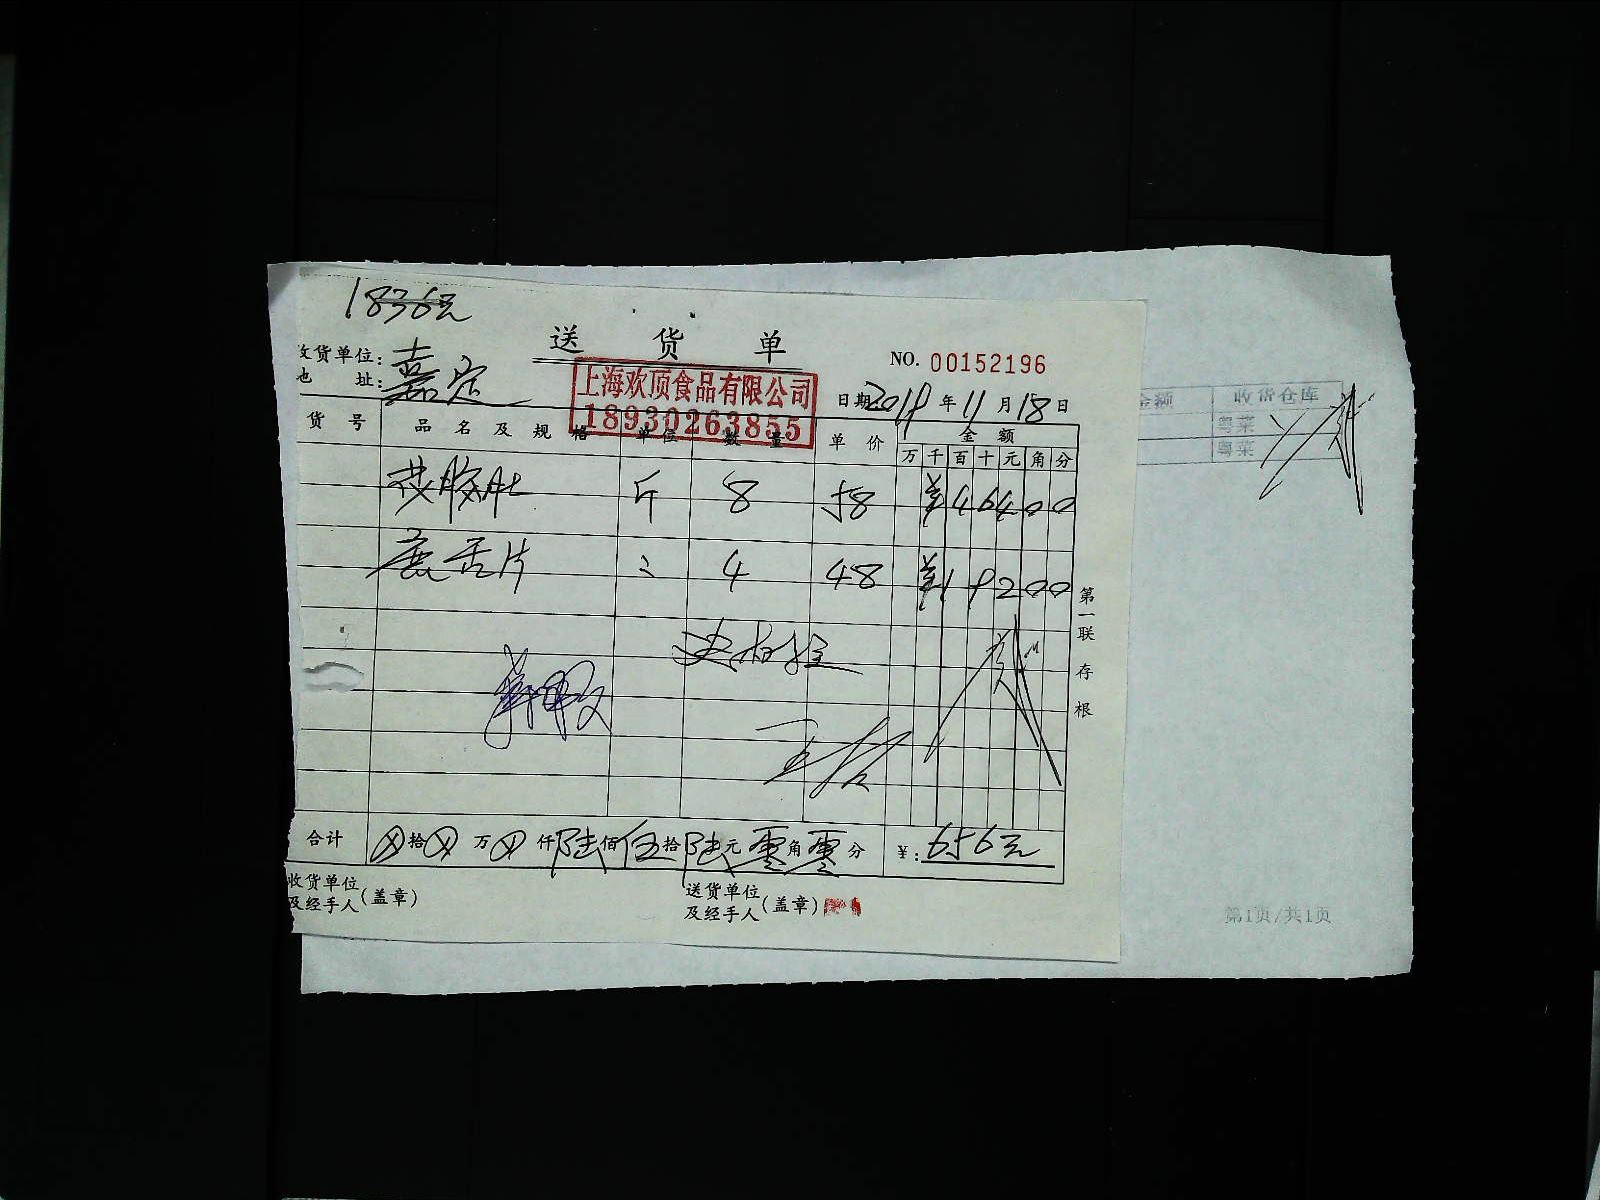 1836元
送货单
NO. 00152196
收货单位: 嘉定
地 址:
上海欢顶食品有限公司
18930263855
日期 2019 年 11 月 18 日
金额 收货仓库
粤菜
粤菜
货号 品名及规格 单位 数量 单价 金额
万 千 百 十 元 角 分
胶肚 斤 8 58 ¥46400
舌片 〃 4 48 ¥19200
第一联 存根
合计 ⊗拾⊗万⊗仟陆佰伍拾陆元零角零分 ¥: 656元
收货单位及经手人(盖章)
送货单位及经手人(盖章)
第1页/共1页